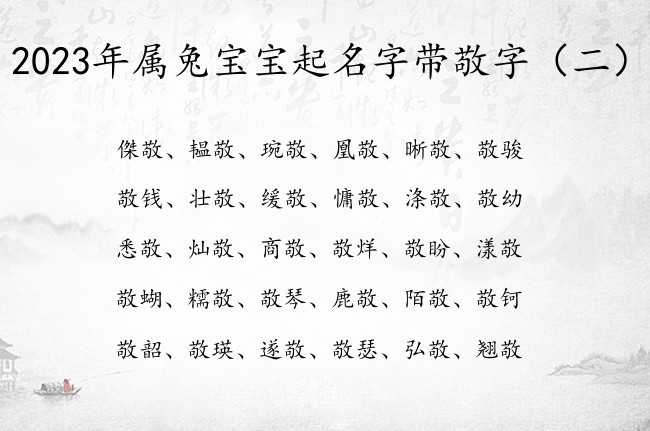 2023年属兔宝宝起名字带敬字（二）
傑敬、韫敬、琬敬、凰敬、晰敬、敬骏
敬钱、壮敬、缓敬、慵敬、涤敬、敬幼
悉敬、灿敬、商敬、敬烊、敬盼、漾敬
敬蝴、糯敬、敬琴、鹿敬、陌敬、敬钶
敬韶、敬瑛、遂敬、敬瑟、弘敬、翘敬